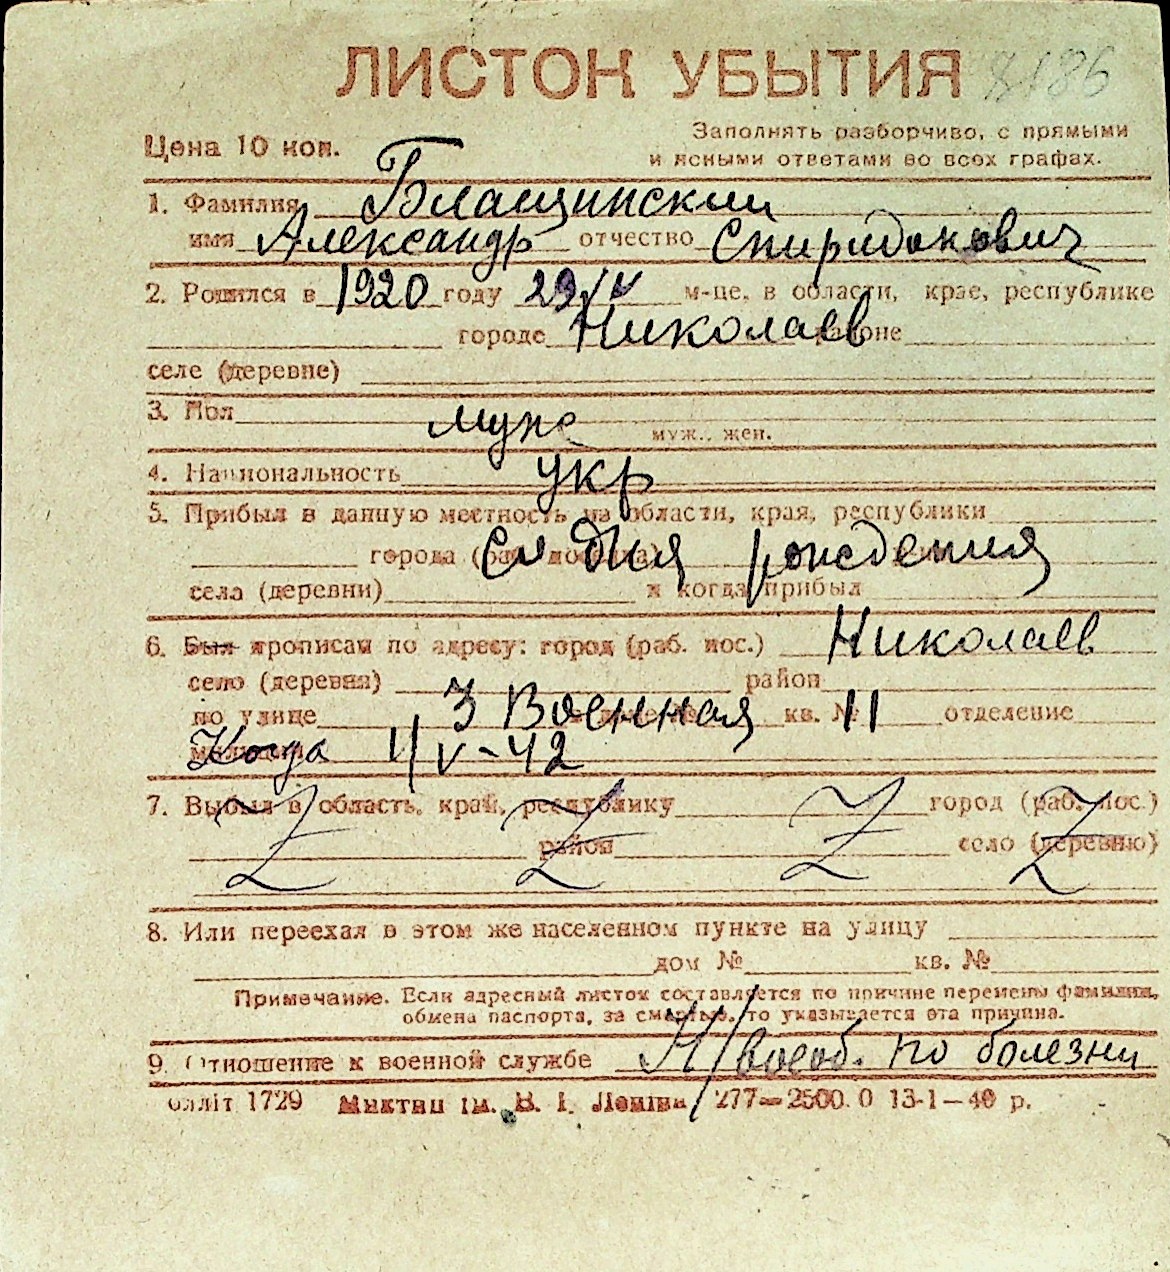 ЛИСТОК УБЫТИЯ 8186
Цена 10 коп.
Заполнять разборчиво, с прямыми
и ясными ответами во всех графах.
1. Фамилия Блащинский
имя Александр отчество Спиридонович
2. Родился в 1920 году 29/V м-це, в области, крае, республике
городе Николаев районе
селе (деревне)
3. Пол муж
муж., жен.
4. Национальность укр
5. Прибыл в данную местность из области, края, республики
города (раб. поселка) со дня рождения
села (деревни) и когда прибыл
6. Был прописан по адресу: город (раб. пос.) Николаев
село (деревня) район
по улице 3 Военная кв. № 11 отделение
Когда 4/V-42
7. Выбыл в область, край, республику город (раб. пос.)
район село (деревню)
Z Z Z Z
8. Или переехал в этом же населенном пункте на улицу
дом № кв. №
Примечание. Если адресный листок составляется по причине перемены фамилии,
обмена паспорта, за смертью, то указывается эта причина.
9. Отношение к военной службе Н/воеоб. по болезни
олліт 1729 ім. В. І. Леніна 277—2500. 0 13-1—40 р.